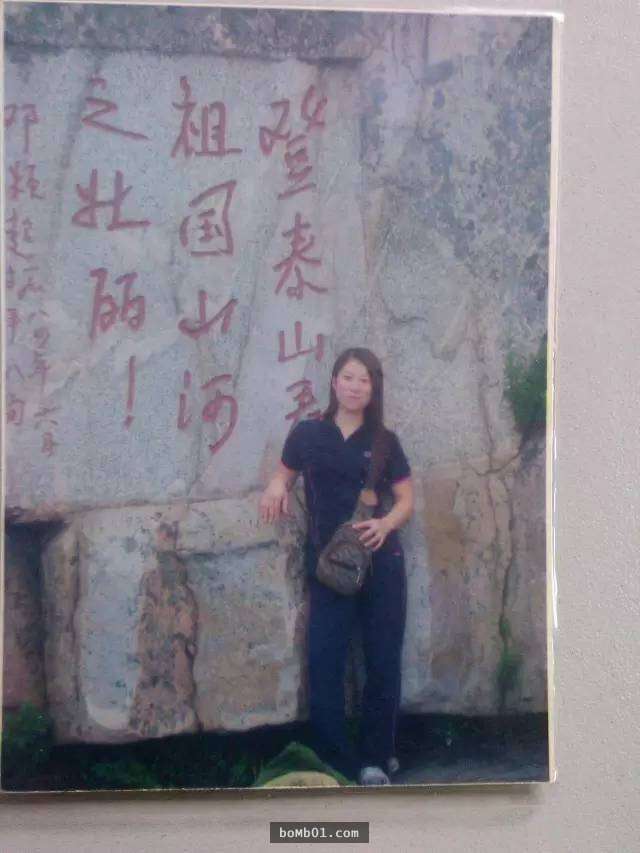 登泰山看
祖国山河
之壮丽！
邓颖超
一九八四年六月
时年八旬
bomb01.com